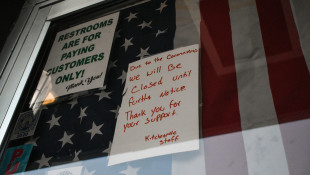 RESTROOMS
ARE FOR
PAYING
CUSTOMERS
ONLY!
Thank you!
Due to the Coronavirus
we will Be
Closed until
further notice.
Thank you for
your support.
Kitchenette
Staff